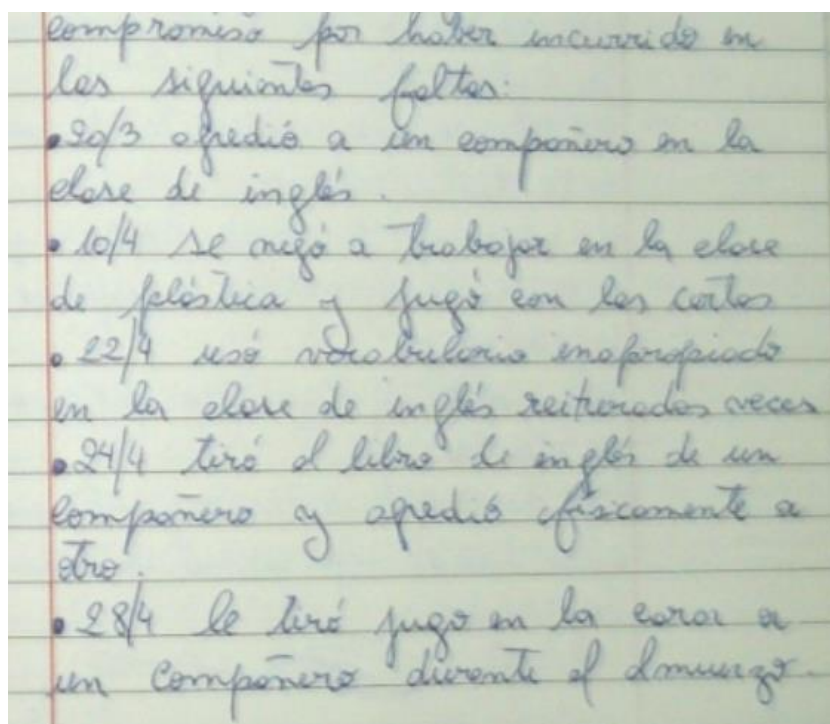 compromiso por haber incurrido en
las siguientes faltas:
•20/3 agredió a un compañero en la
clase de inglés.
•10/4 se negó a trabajar en la clase
de plástica y jugó con las cartas
•22/4 usó vocabulario inapropiado
en la clase de inglés reiteradas veces
•24/4 tiró el libro de inglés de un
compañero y agredió físicamente a
otro.
•28/4 le tiró jugo en la cara a
un compañero durante el almuerzo.